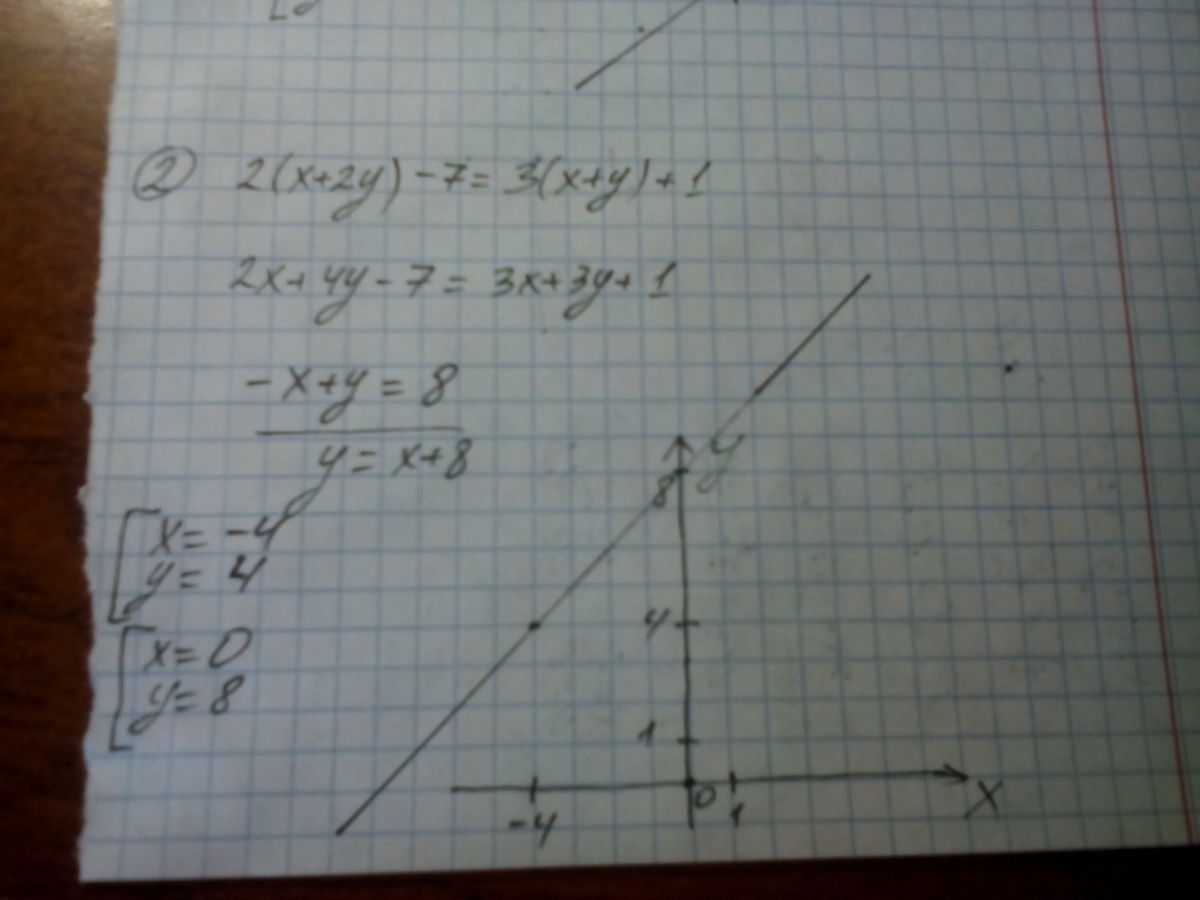 ② 2(x+2y)-7=3(x+y)+1
2x+4y-7=3x+3y+1
-x+y=8
y=x+8
x=-4
y=4
x=0
y=8
y
8
4
1
-4
0
1
X